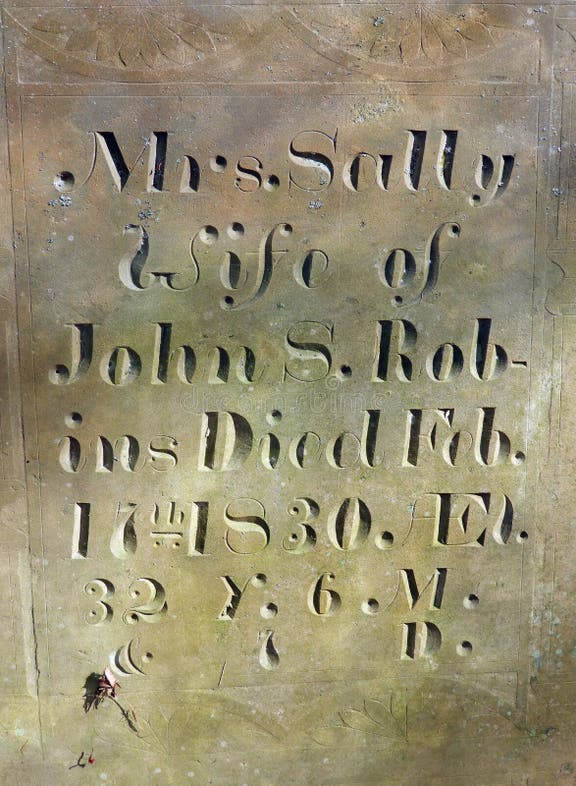 Mrs. Sally
Wife of
John S. Rob-
ins Died Feb.
17th 1830. Æt.
32 Y. 6. M.
&. 7 D.
dreamstime